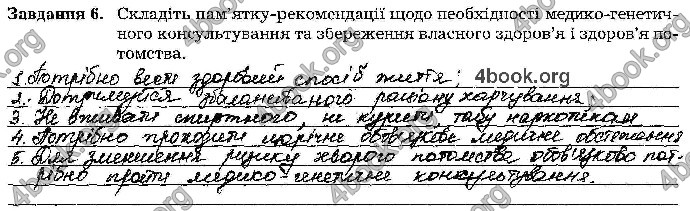 Завдання 6. Складіть пам'ятку-рекомендації щодо необхідності медико-генетич-
ного консультування та збереження власного здоров'я і здоров'я по-
томства.
1. Потрібно вести здоровий спосіб життя;
2. Дотримуватися збалансованого раціону харчування
3. Не вживати спиртного, не курити, табу наркотикам
4. Потрібно проходити щорічне обов'язкове медичне обстеження
5. Для зменшення ризику хворого потомства обов'язково пот-
рібно пройти медико-генетичне консультування.
4book.org